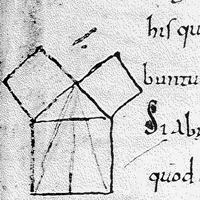 hiſ qu
buntu
Si ab
quod